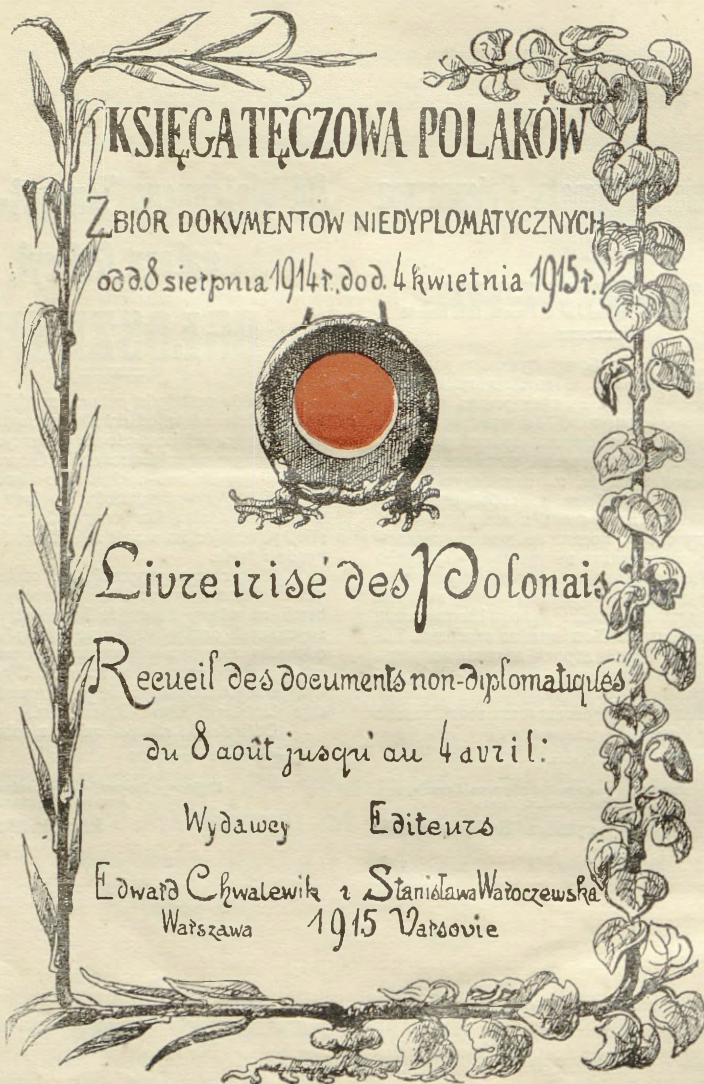 KSIĘGA TĘCZOWA POLAKÓW
ZBIÓR DOKVMENTÓW NIEDYPLOMATYCZNYCH
od d. 8 sierpnia 1914 r. do d. 4 kwietnia 1915 r.
Livre irisé des Polonais
Recueil des documents non-diplomatiques
du 8 août jusqu'au 4 avril:
Wydawcy Editeurs
Edward Chwalewik i Stanisława Waroczewska
Warszawa 1915 Varsovie